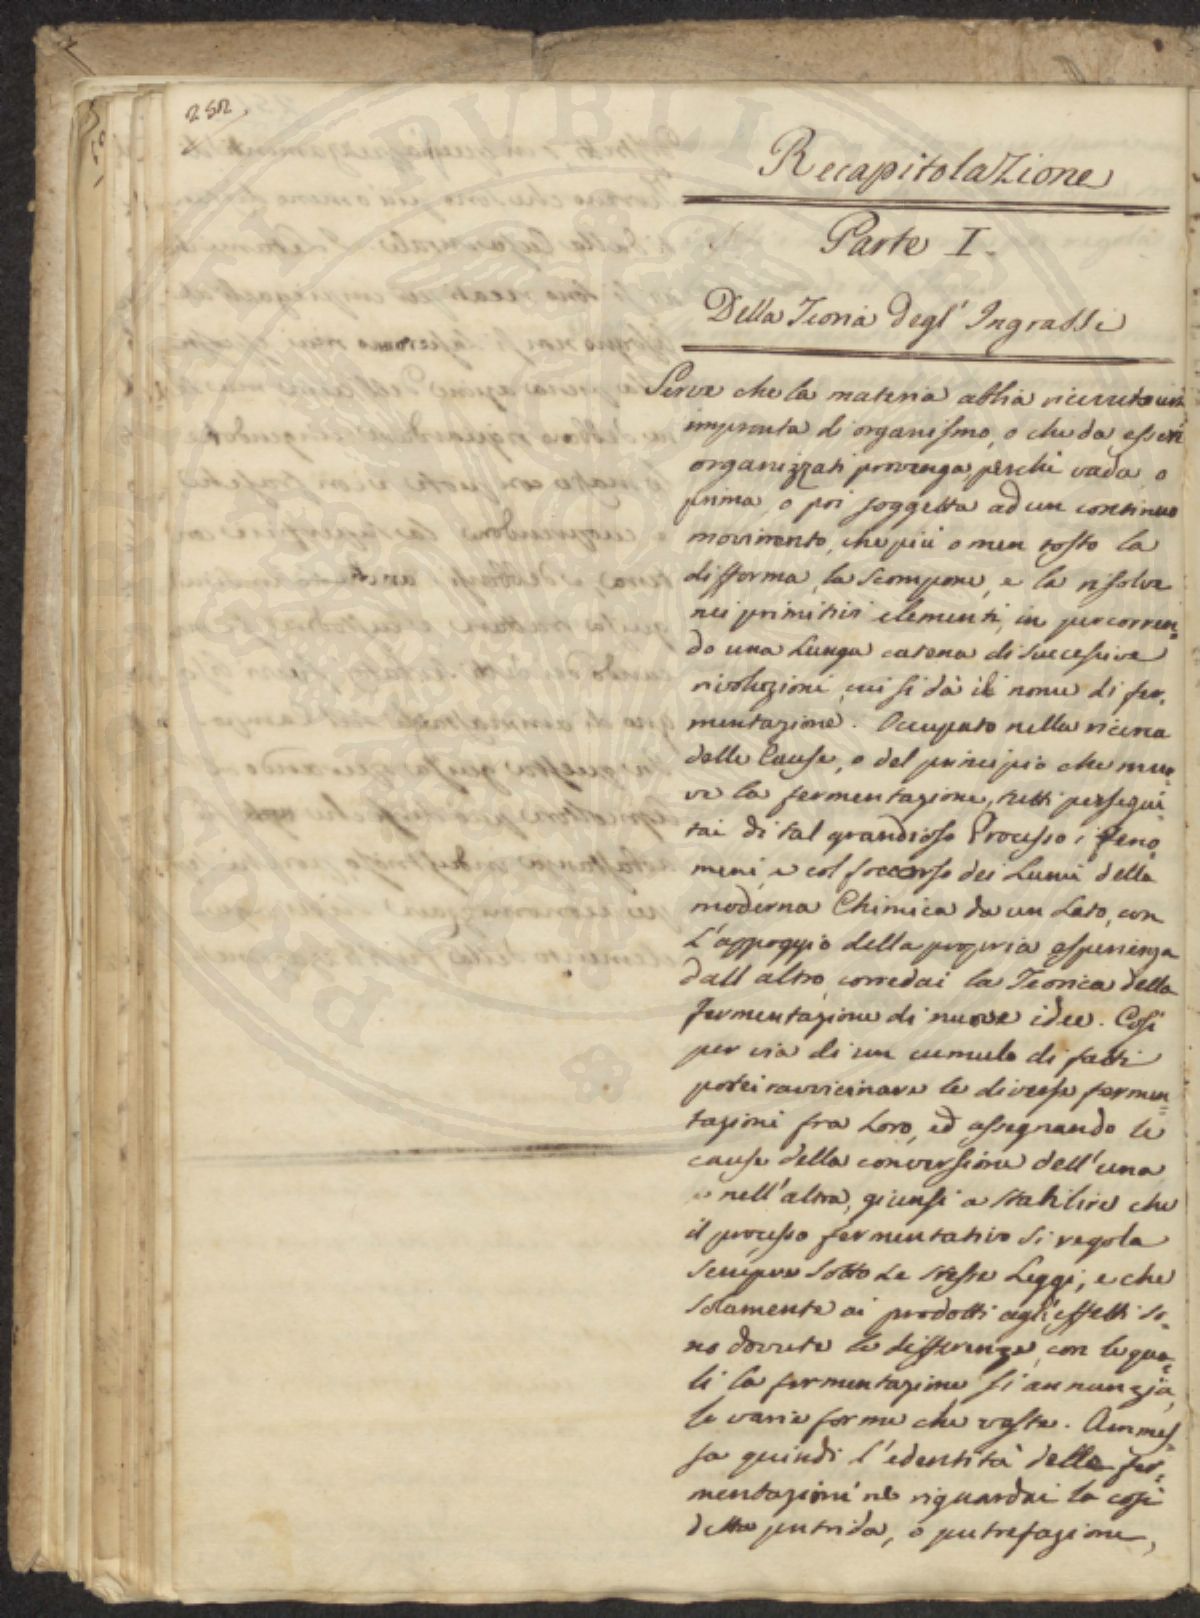 252
Recapitolazione
Parte I.
Della Teoria degl' Ingrassi
Serve che la materia abbia ricevuto un'
impronta di organismo, o che da esseri
organizzati provenga, perchè vada, o
prima, o poi soggetta ad un continuo
movimento, che più o men tosto la
difforma, la scompone, e la risolve
nei primitivi elementi, in percorren=
do una lunga catena di successive
rivoluzioni, cui si dà il nome di fer=
mentazione. Occupato nella ricerca
delle Cause, o del principio che muo=
ve la fermentazione, tutti persegui
tai di tal grandioso Processo i Feno=
meni, e col soccorso dei Lumi della
moderna Chimica da un Lato, con
L'appoggio della propria esperienza
dall altro, corredai la Teorica della
fermentazione di nuove idee. Così
per via di un cumulo di fatti
potei ravvicinare le diverse fermen=
tazioni fra Loro, ed assegnando le
cause della conversione dell'una
nell'altra, giunsi a stabilire che
il processo fermentativo si regola
sempre sotto Le stesse Leggi, e che
solamente ai prodotti agli effetti so=
no dovute le differenze, con le qua=
li la fermentazione si annunzia,
le varie forme che veste. Ammes=
sa quindi l'edentità delle fer=
mentazioni nè riguardai la così
detta putrida, o putrefazione,